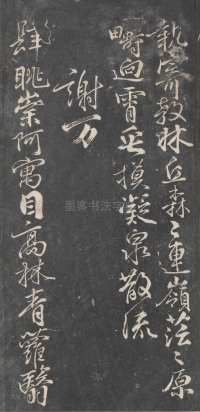 執寄敖林丘森〻連嶺茫〻原
疇迥霄垂模凝泉散流
謝万
肆眺崇阿寓目高林青蘿翳
墨客书法字